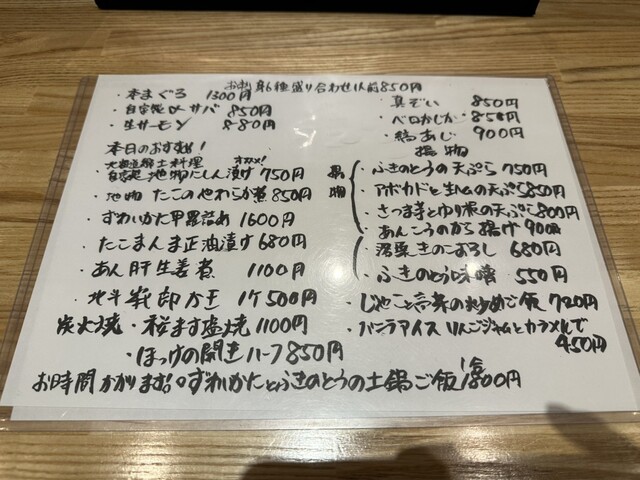 お刺身6種盛り合わせ1人前850円
・本まぐろ 1300円
・自家製〆サバ 850円
・生サーモン 880円
本日のおすすめ!
土料理 オススメ!
自家製 地物にしん漬け 750円
・地物 たこのやわらか煮 850円
・ずわいがに甲羅詰め 1600円
・たこまんま正油漬け 680円
・あん肝生姜煮 1100円
1ケ500円
炭火焼・桜ます塩焼 1100円
・ほっけの開き ハーフ850円
お時間かかります!。ずわいがにとふきのとうの土鍋ご飯 1合1800円
・真ぞい 850円
・ベロかじか 850円
・縞あじ 900円
揚物
・ふきのとうの天ぷら 750円
・アボカドと生ハムの天ぷら 850円
・さつま芋とゆり根の天ぷら 800円
・あんこうのから揚げ 900円
きのこおろし 680円
・ふきのとう味噌 550円
・じゃこと高菜の炒めご飯 720円
・バニラアイス りんごジャムとカラメルで
450円